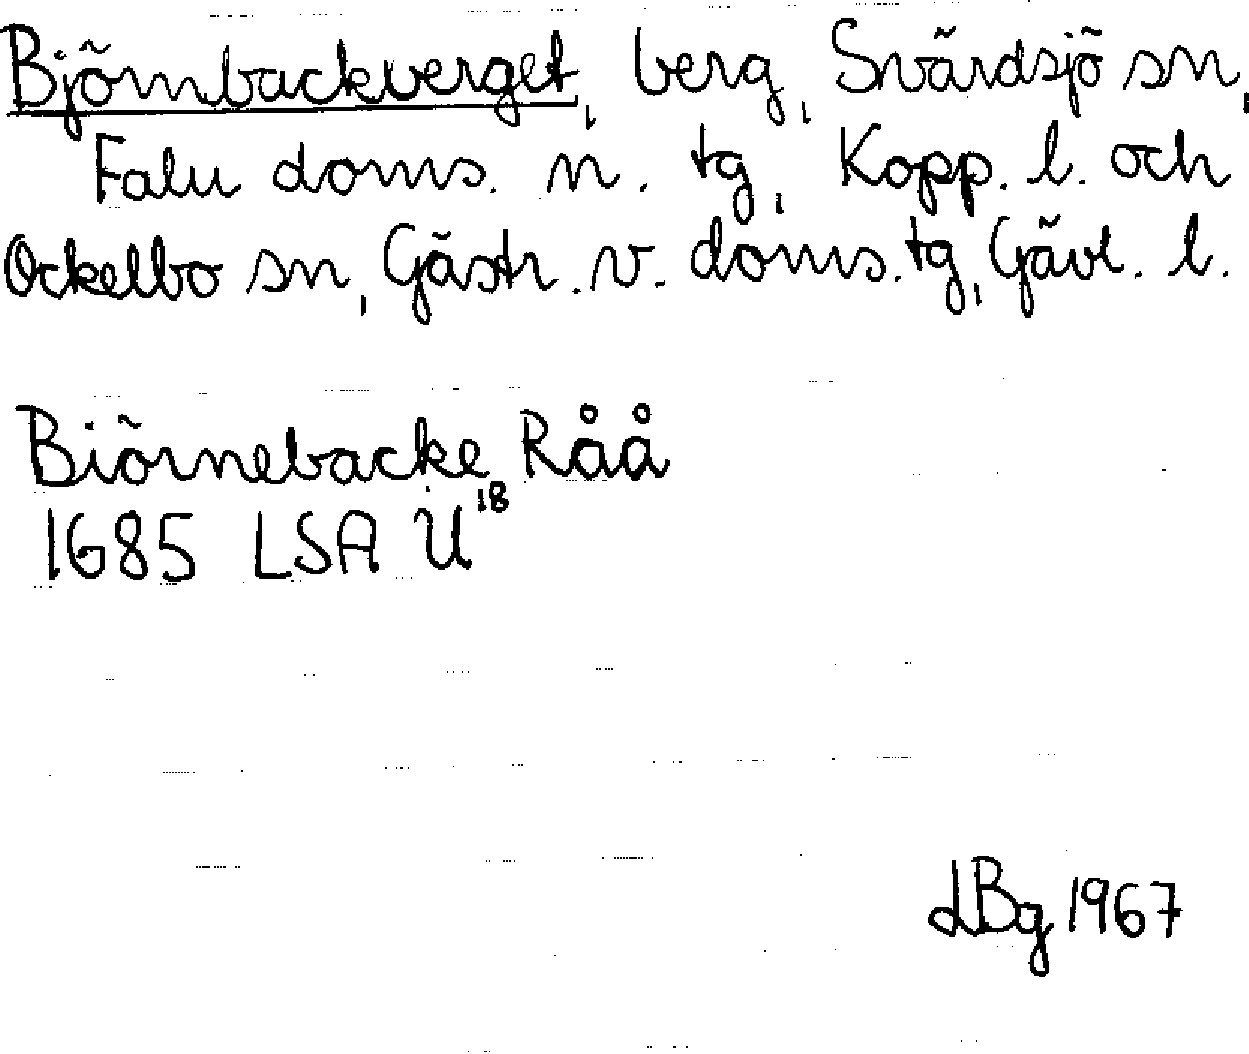 Björnbackverget, berg, Svärdsjö sn,
Falu doms. n. tg, Kopp. l. och
Ockelbo sn, Gästr. v. doms. tg, Gävl. l.
Biörnebacke Råå
1685 LSA U¹⁸
LBg 1967